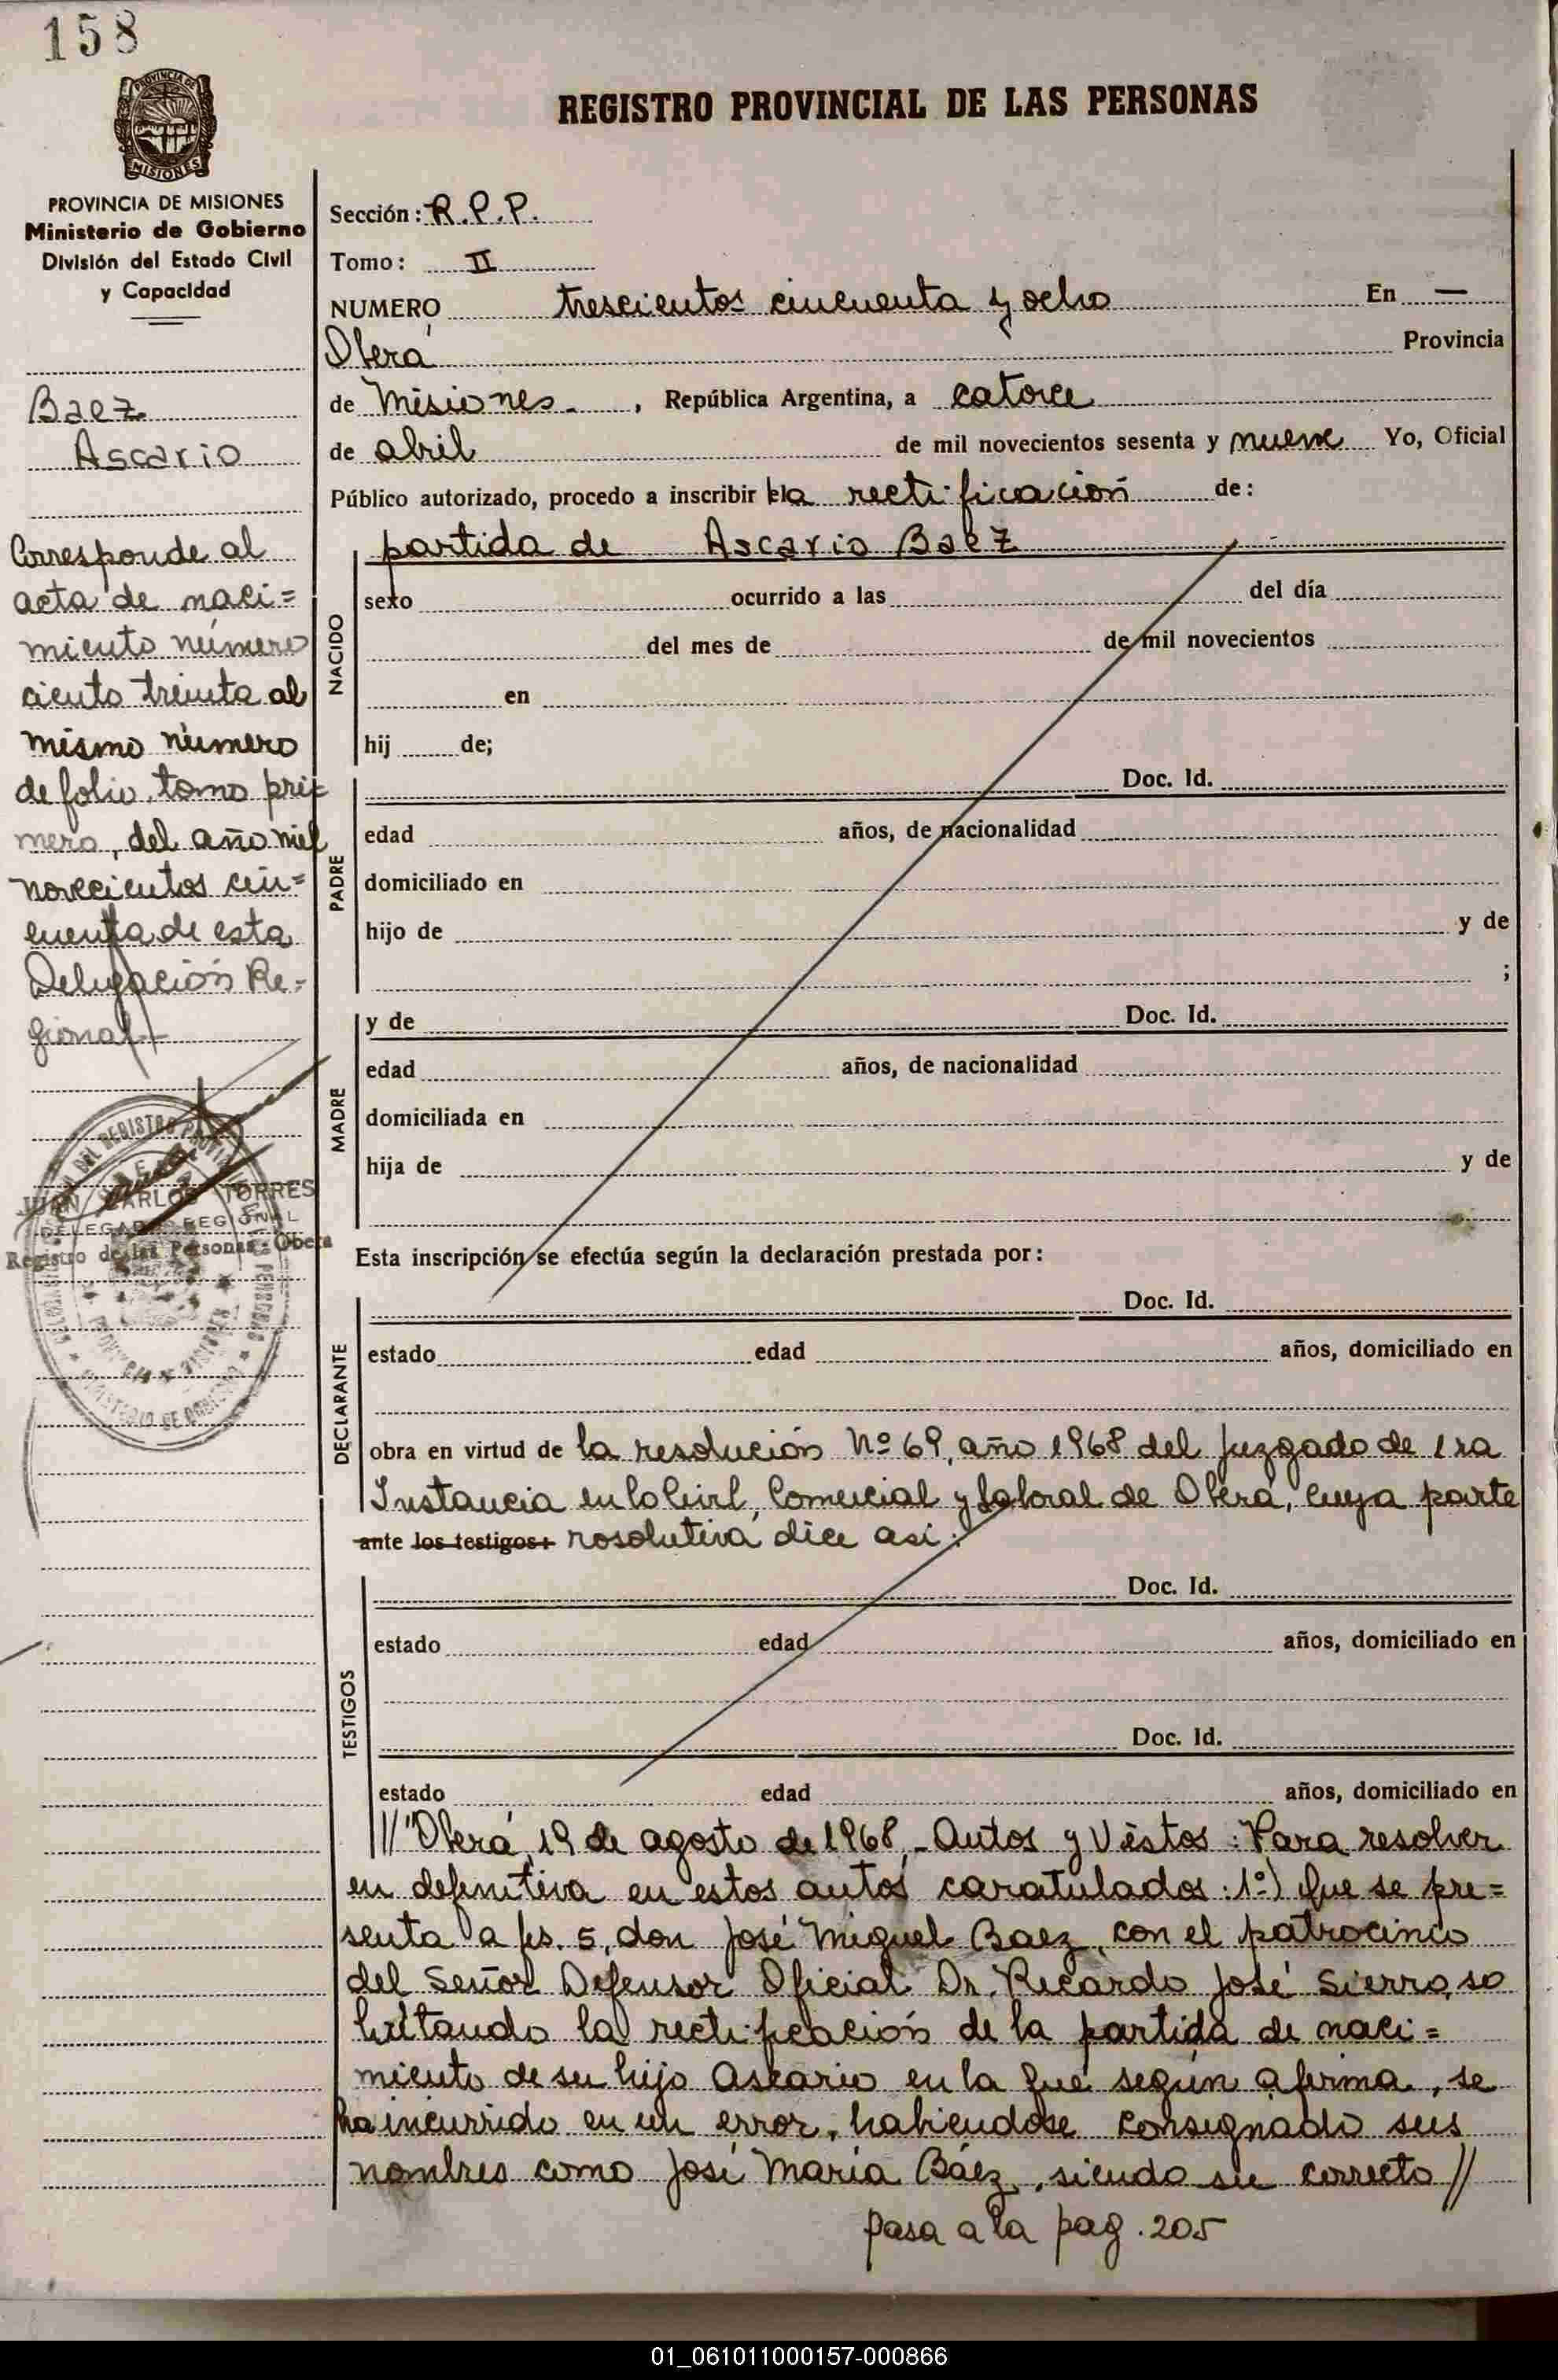 158
PROVINCIA DE
MISIONES
REGISTRO PROVINCIAL DE LAS PERSONAS
PROVINCIA DE MISIONES
Ministerio de Gobierno
División del Estado Civil
y Capacidad
Baez
Ascario
Corresponde al
acta de naci=
miento número
ciento treinta al
mismo número
de folio, tomo pri=
mero, del año mil
novecientos cin=
cuenta de esta
Delegación Re=
gional
JUAN CARLOS TORRES
DELEGADO REGIONAL
Registro de las Personas - Obera
Sección: R.P.P.
Tomo: II
NUMERO trescientos cincuenta y ocho En —
Oberá Provincia
de Misiones , República Argentina, a catorce
de abril de mil novecientos sesenta y nueve Yo, Oficial
Público autorizado, procedo a inscribir la rectificación de:
partida de Ascario Baez
NACIDO
sexo ocurrido a las del día
del mes de de mil novecientos
en
hij de;
PADRE
Doc. Id.
edad años, de nacionalidad
domiciliado en
hijo de y de
;
MADRE
y de Doc. Id.
edad años, de nacionalidad
domiciliada en
hija de y de
Esta inscripción se efectúa según la declaración prestada por:
DECLARANTE
Doc. Id.
estado edad años, domiciliado en
obra en virtud de la resolución Nº 69, año 1968 del Juzgado de 1ra
Instancia en lo Civil, Comercial y Laboral de Oberá, cuya parte
ante los testigos: rosolutiva dice asi:
TESTIGOS
Doc. Id.
estado edad años, domiciliado en
Doc. Id.
estado edad años, domiciliado en
//"Oberá, 19 de agosto de 1968.- Autos y Vistos: Para resolver
en definitiva en estos autos caratulados: 1º) Que se pre=
senta a fs. 5, don José Miguel Baez, con el patrocinio
del Señor Defensor Oficial Dr. Ricardo José Sierro, so
licitando la rectificación de la partida de naci=
miento de su hijo Ascario en la que según afirma, se
ha incurrido en un error, habiendose consignado sus
nombres como José María Báez, siendo su correcto //
pasa a la pag. 205
01_061011000157-000866